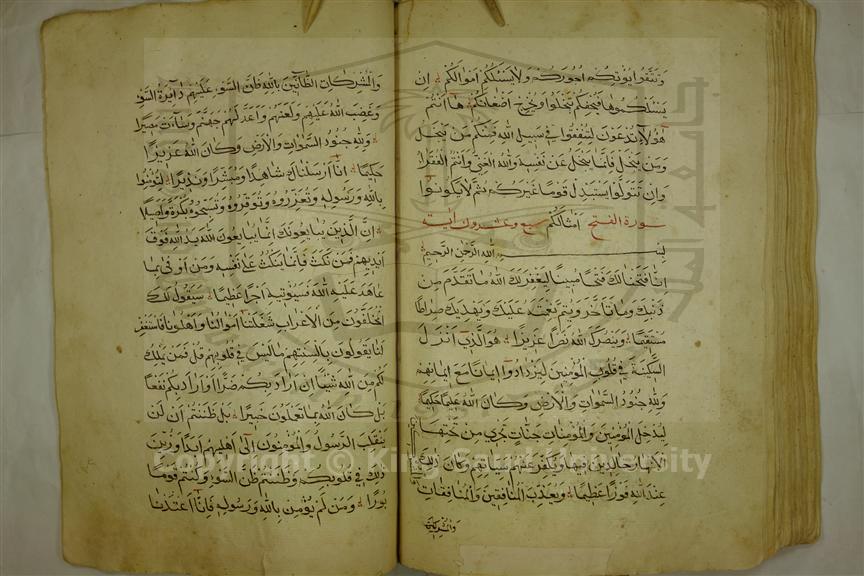 وتتقوا يؤتكم اجوركم ولا يسئلكم اموالكم ان
يسئلكموها فيحفكم تبخلوا ويخرج اضغانكم ها انتم
هؤلاء تدعون لتنفقوا في سبيل الله فمنكم من يبخل
ومن يبخل فانما يبخل عن نفسه والله الغني وانتم الفقراء
وان تتولوا يستبدل قوما غيركم ثم لا يكونوا
سورة الفتح امثالكم تسع وعشرون اية
بسم الله الرحمن الرحيم
انا فتحنا لك فتحا مبينا ليغفر لك الله ما تقدم من
ذنبك وما تأخر ويتم نعمته عليك ويهديك صراطا
مستقيما وينصرك الله نصرا عزيزا هو الذي انزل
السكينة في قلوب المؤمنين ليزدادوا ايمانا مع ايمانهم
ولله جنود السموات والارض وكان الله عليما حكيما
ليدخل المؤمنين والمؤمنات جنات تجري من تحتها
الانهار خالدين فيها ويكفر عنهم سيئاتهم وكان ذلك
عند الله فوزا عظيما ويعذب المنافقين والمنافقات
والمشركين
والمشركات الظانين بالله ظن السوء عليهم دائرة السوء
وغضب الله عليهم ولعنهم واعد لهم جهنم وساءت مصيرا
ولله جنود السموات والارض وكان الله عزيزا
حكيما انا ارسلناك شاهدا ومبشرا ونذيرا لتؤمنوا
بالله ورسوله وتعزروه وتوقروه وتسبحوه بكرة واصيلا
ان الذين يبايعونك انما يبايعون الله يد الله فوق
ايديهم فمن نكث فانما ينكث على نفسه ومن اوفى بما
عاهد عليه الله فسيؤتيه اجرا عظيما سيقول لك
المخلفون من الاعراب شغلتنا اموالنا واهلونا فاستغفر
لنا يقولون بالسنتهم ما ليس في قلوبهم قل فمن يملك
لكم من الله شيئا ان اراد بكم ضرا او اراد بكم نفعا
بل كان الله بما تعملون خبيرا بل ظننتم ان لن
ينقلب الرسول والمؤمنون الى اهليهم ابدا وزين
ذلك في قلوبكم وظننتم ظن السوء وكنتم قوما
بورا ومن لم يؤمن بالله ورسوله فانا اعتدنا
Copyright © King Saud University